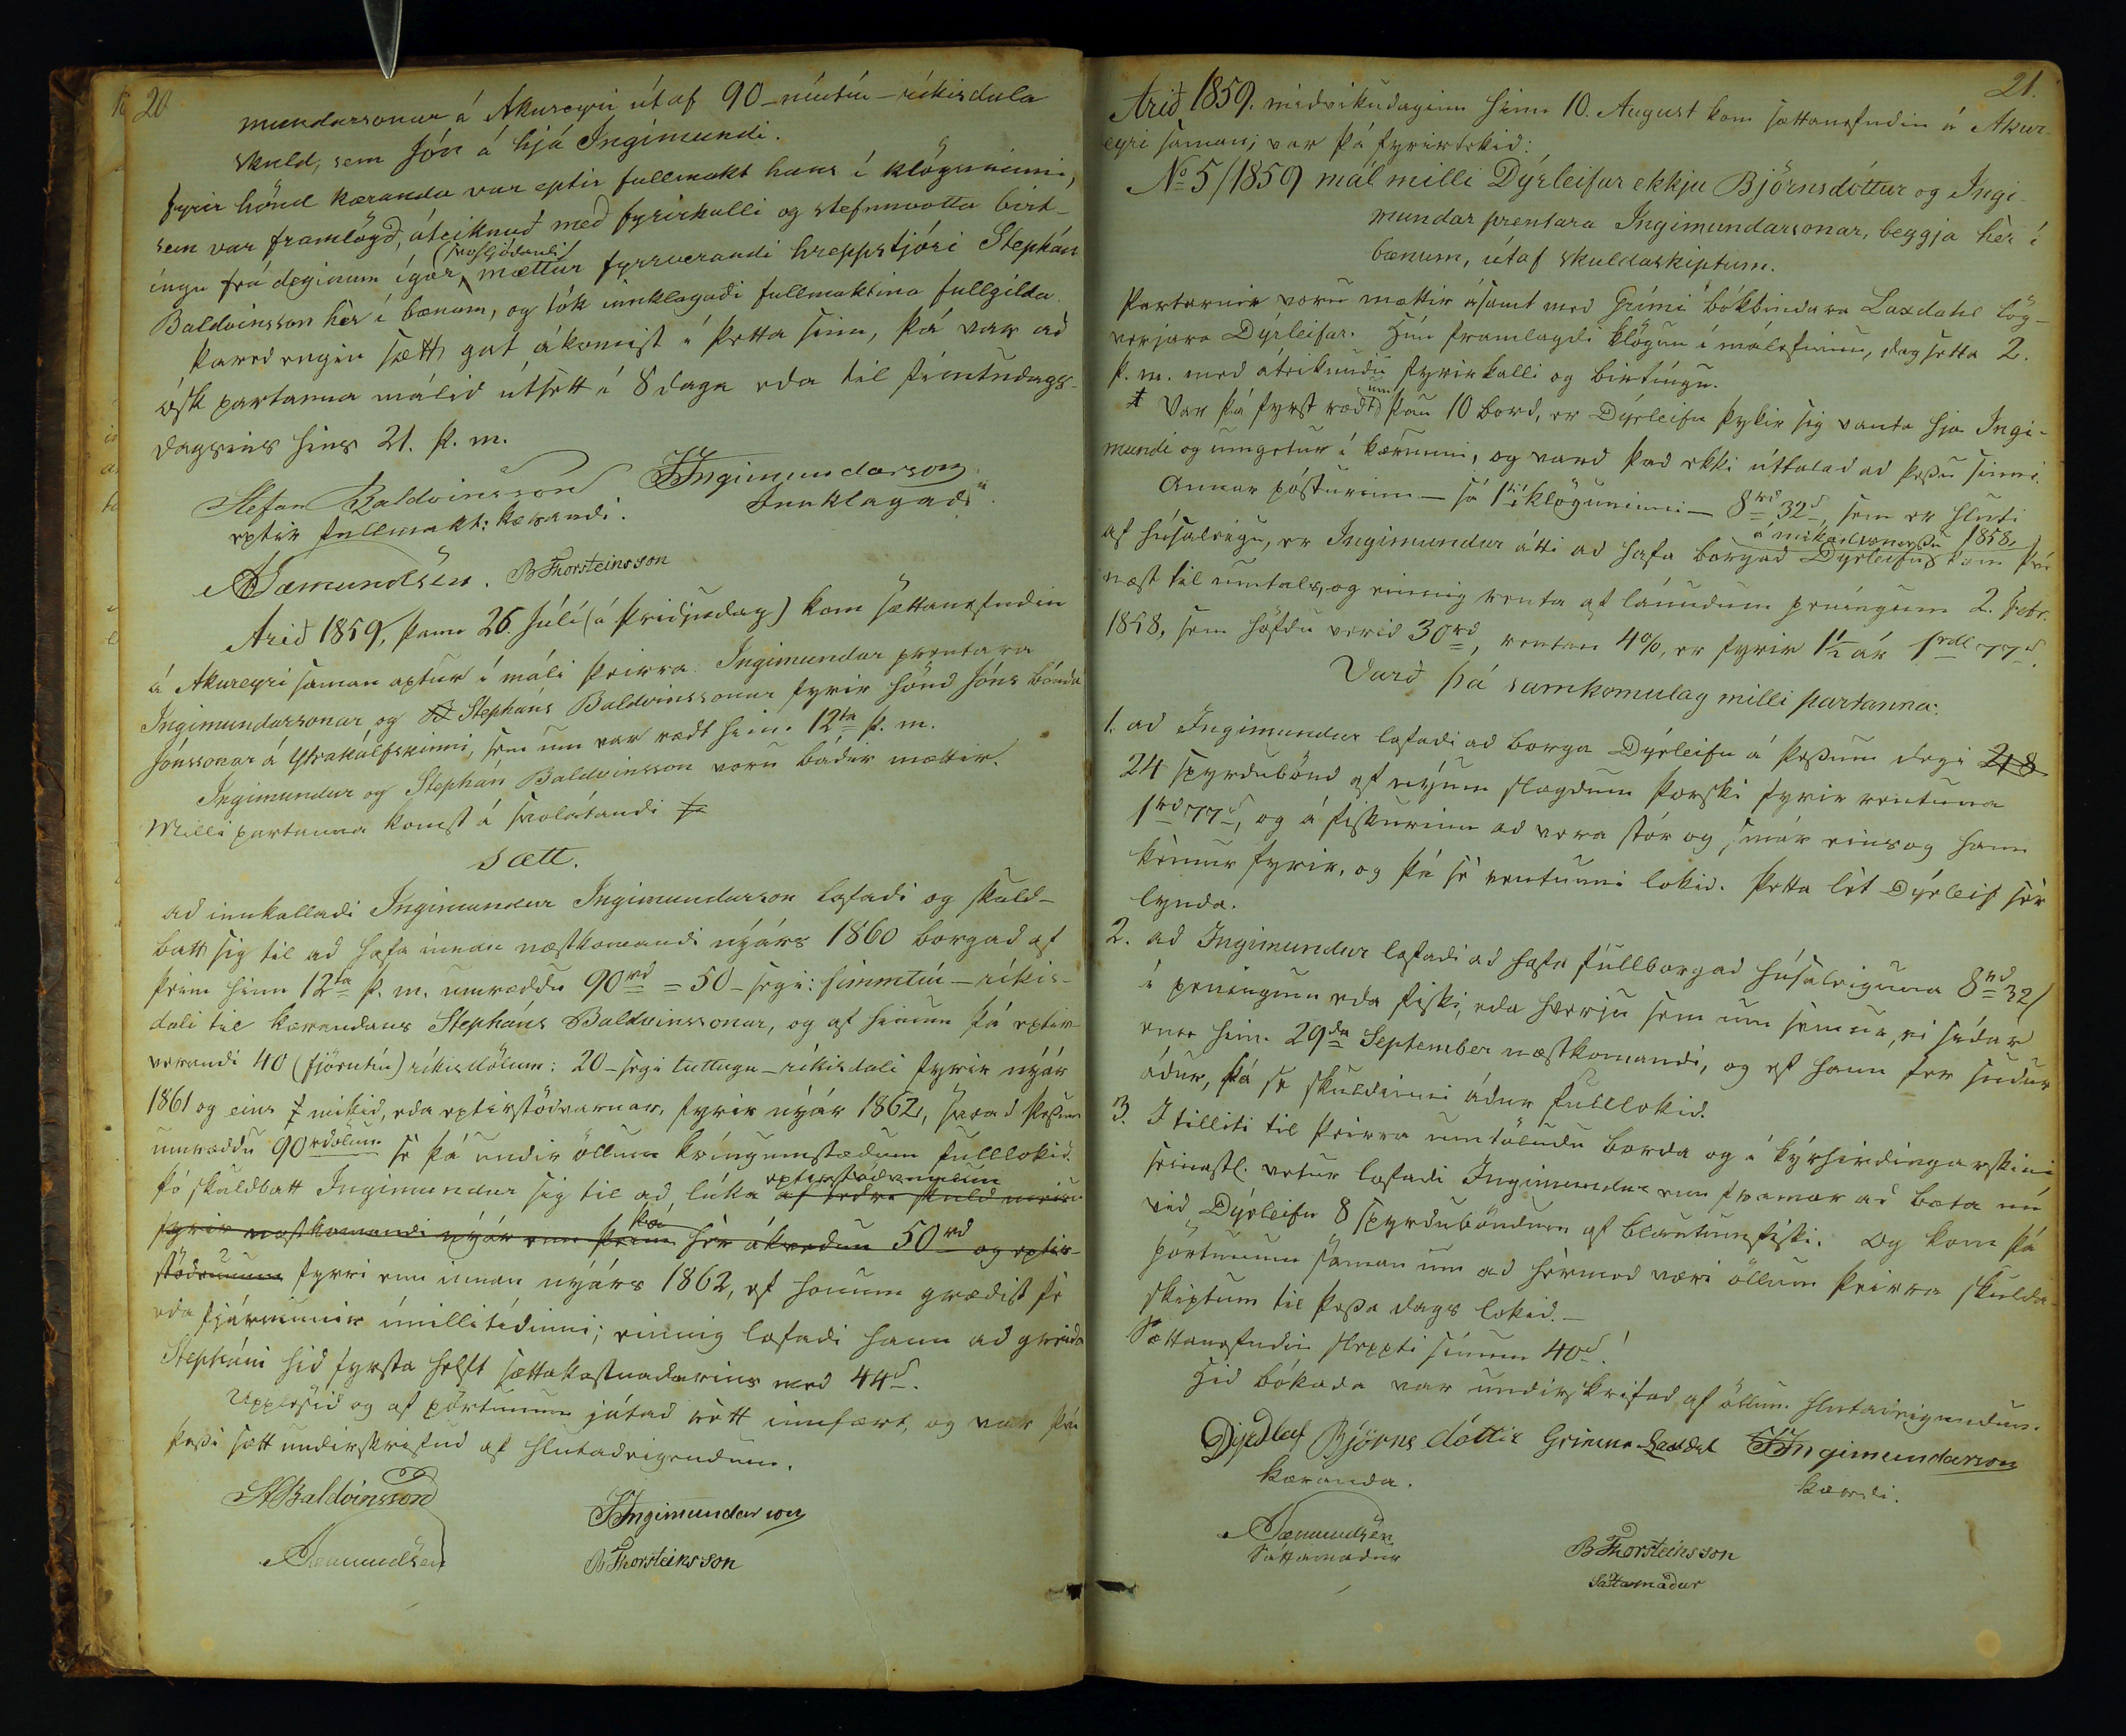 20
mundarsonar á Akureyri útaf 90 – níutíu – ríkisdala
skuld, sem Jón á hjá Ingimundi.
Fyrir hönd kæranda var eptir fullmakt hans í klöguninni,
sem var framlögð, áteiknuð með fyrirkalli og stefnuvotta birt-
íngu frá deginum ígær, (svohljóðandi) mættur fyrrverandi hreppstjóri Stephán
Baldvinsson hèr í bænum, og tók innklagaði fullmaktina fullgilda.
Þared engin sætt gat ákomist í þetta sinn, þá var að
ósk partanna málið útsett í 8 daga eda til fimtudags-
dagsins hins 21. þ. m.
Stefan Baldvinsson IIngimundarson
eptir fullmakt: kærandi. Innklagaði
ASæmundsen. BThorsteinsson
Arið 1859, þann 26. Júlí (á þriðjudag) kom sættanefndin
á Akureyri saman aptur í máli þeirra Ingimundar prentara
Ingimundarsonar og Stepháns Baldvinssonar fyrir hönd Jóns bónda
Jónssonar á Ytrakálfskinni, sem um var rædt hinn 12ta þ. m.
Ingimundur og Stephán Baldvinsson voru báðir mættir.
Milli partanna komst á svolátandi
sætt.
að innkallaði Ingimundur Ingimundarson lofaði og skuld-
batt sig til að hafa innan næstkomandi nýárs 1860 borgað af
þeim hinn 12ta þ. m. umræddu 90rd = 50 – segi: fimmtíu – ríkis-
dali til kærandans Stepháns Baldvinssonar, og af hinum þá eptir-
verandi 40 (fjörutíu) ríkisdölum: 20 – segi tuttugu – ríkisdali fyrir nýár
1861 og eins mikið, eda eptirstöðvarnar, fyrir nýár 1862, svoað þessum
umræddu 90 rdölum sè þá undir öllum kríngumstædum fulllokið.
Þó skuldbatt Ingimundur sig til að lúka eptirstöðvunum af tèdri skuld meira
fyrir næstkomandi nýár enn þeim hèr ákvednu 50rd og eptir-
stöðvunum fyrri enn innan nýárs 1862, ef honum græðist fè
eda fjármunir ímillitíðinni; einnig lofaði hann að greiða
Stepháni hið fyrsta helft sættakostnadarins með 44s.
Upplesið og af pörtunum játað rètt innfært, og var því
þessi sætt undirskrifuð af hlutaðeigendum.
StBaldvinsson
IIngimundarson
ASæmundsen BThorsteinsson
21.
Arið 1859. miðvikudaginn hinn 10. August kom sættanefndin á Akur-
eyri saman; var þá fyrirtekið:
No 5/1859 mál milli Dýrleifar ekkju Björnsdóttur og Ingi-
mundar prentara Ingimundarsonar, beggja hèr í
bænum, útaf skuldaskiptum.
Partarnir voru mættir ásamt með Grími bókbindara Laxdahl lög-
verjara Dýrleifar. Hún framlagði klögun í málefninu, dagsetta 2.
þ. m. með áteiknuðu fyrirkalli og birtíngu.
Var þá fyrst rædt um þau 10 borð, er Dýrleifu þykir sig vanta hjá Ingi-
mundi og umgetur í kærunni, og varð það ekki úttalað að þessu sinni.
Annar pósturinn – sá 1ti í klöguninni – 8rd 32s, sem er hluti
af húsaleigu, er Ingimundur átti að hafa borgað Dýrleifu á mikaelsmessu 1858, kom því
næst til umtals, og einnig renta af lánuðum peníngum 2. Febr.
1858, sem höfðu verið 30rd, rentan 4%, er fyrir 1½ ár 1rdl 77s.
Varð þá samkomulag milli partanna:
1. að Ingimundur lofaði að borga Dýrleifu á þessum degi
24 spyrðubönd af nýum slægdum þorski fyrir rentuna
1rd 77s, og á fiskurinn að vera stór og smár einsog hann
kèmur fyrir, og þá sè rentunni lokið. Þetta lèt Dýrleif sèr
lynda.
2. að Ingimundur lofaði að hafa fullborgað húsaleiguna 8rd 32/
í peníngum eda fiski, eda hverju sem um semur, ei síðar
enn hinn 29da September næstkomandi, og ef hann fer suður
áður, þá sè skuldinni áður fulllokið.
3. I tilliti til þeirra umtöluðu borda og á kýrhirdingarskini
seinastl. vetur lofaði Ingimundur enn framar að bæta nú
við Dýrleifu 8 spyrðuböndum af blautumfiski. Og kom þá
pörtunum saman um að hèrmeð væri öllum þeirra skulda-
skiptum til þessa dags lokið. –
Sættanefndin sleppti sínum 40s.
Hið bókaða var undirskrifað af öllum hlutaðeigendum.
Dyrdleif Björns dóttir Grimur Laxdal IIngimundarson
kæranda. kærdi.
ASæmundsen
Sáttamaður BThorsteinsson
Sáttamaður